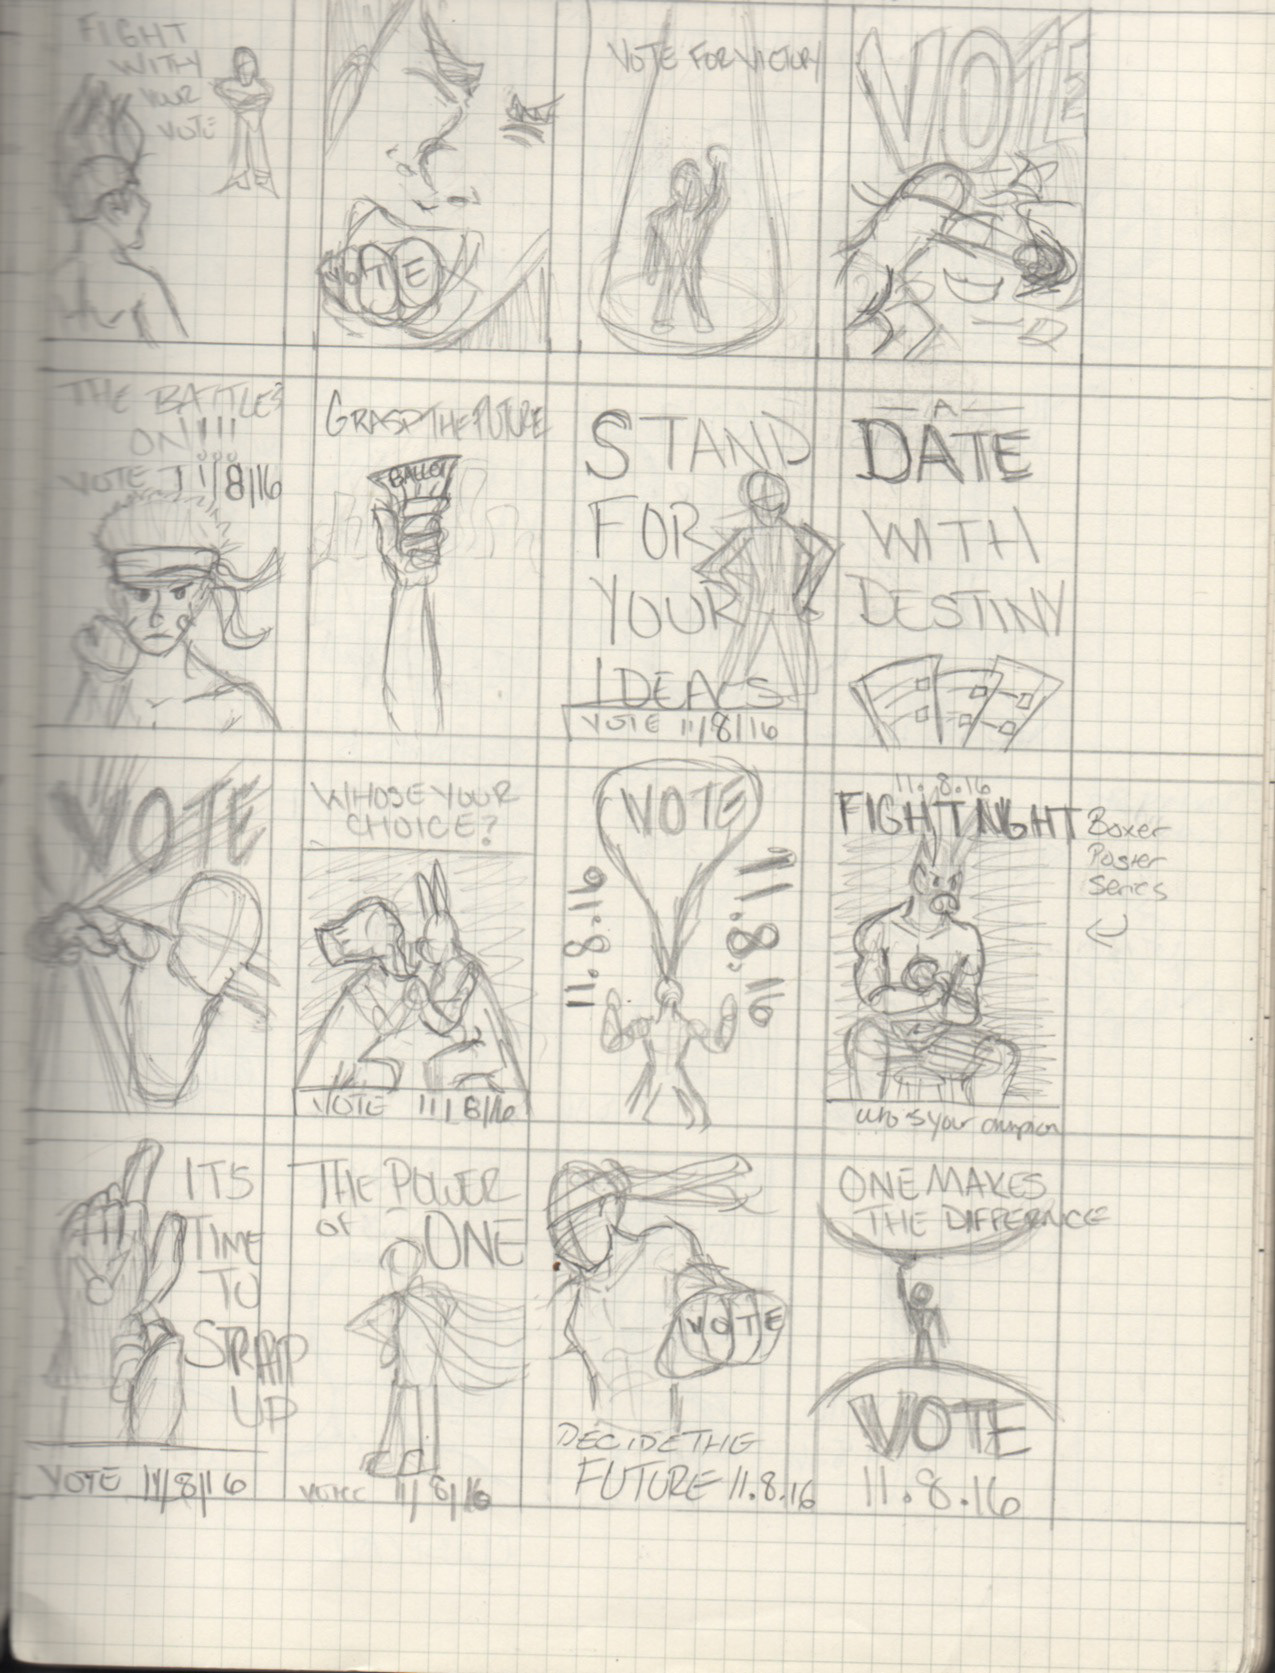 FIGHT
WITH
YOUR
VOTE
VOTE
VOTE FOR VICTORY
VOTE
THE BATTLE'S
ON!!!!
VOTE 11/8/16
GRASP THE FUTURE
BALLOT
STAND
FOR
YOUR
IDEALS
VOTE 11/8/16
A
DATE
WITH
DESTINY
VOTE
WHOSE YOUR
CHOICE?
VOTE 11/8/16
VOTE
11.8.16
11.8.16
11.8.16
FIGHT NIGHT
Boxer
Poster
Series
who's your champion
IT'S
TIME
TO
STRAP
UP
VOTE 11/8/16
THE POWER
of ONE
VOTE 11/8/16
VOTE
DECIDE THE
FUTURE 11.8.16
ONE MAKES
THE DIFFERNCE
VOTE
11.8.16